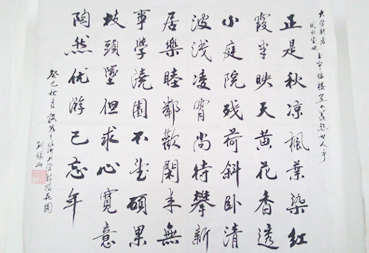 大学新居
正是秋凉楓葉染紅
霞半映天黄花香透
小庭院残荷斜卧清
波浅凌霄尚特攀新
居樂睦鄰歡閑来無
事學澆園不望碩果
枝頭墜但求心寬意
陶然优游已忘年
癸巳秋月